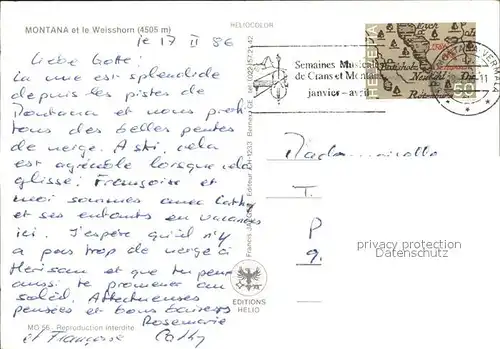 MONTANA et le Weisshorn (4505 m)
HELIOCOLOR
le 17 II 86
Liebe Gotte:
La vue est splendide
depuis les pistes de
Montana et nous profi
tons des belles pentes
de neige. A ski, cela
est agréable lorsque cela
glisse. Françoise et
moi sommes avec Cathy
et ses enfants en vacances
ici. J'espère qu'il n'y
a pas trop de neige à
Herisau et que tu peux
aussi te promener au
soleil. Affectueuses
pensées et bons baisers
Rosemarie
et Françoise Cathy
MO 56 - Reproduction interdite
EDITIONS
HELIO
Semaines Musicales
de Crans et Montana
janvier - avril
HELVETIA
50
Mademoiselle
T. P
g.
privacy protection
Datenschutz